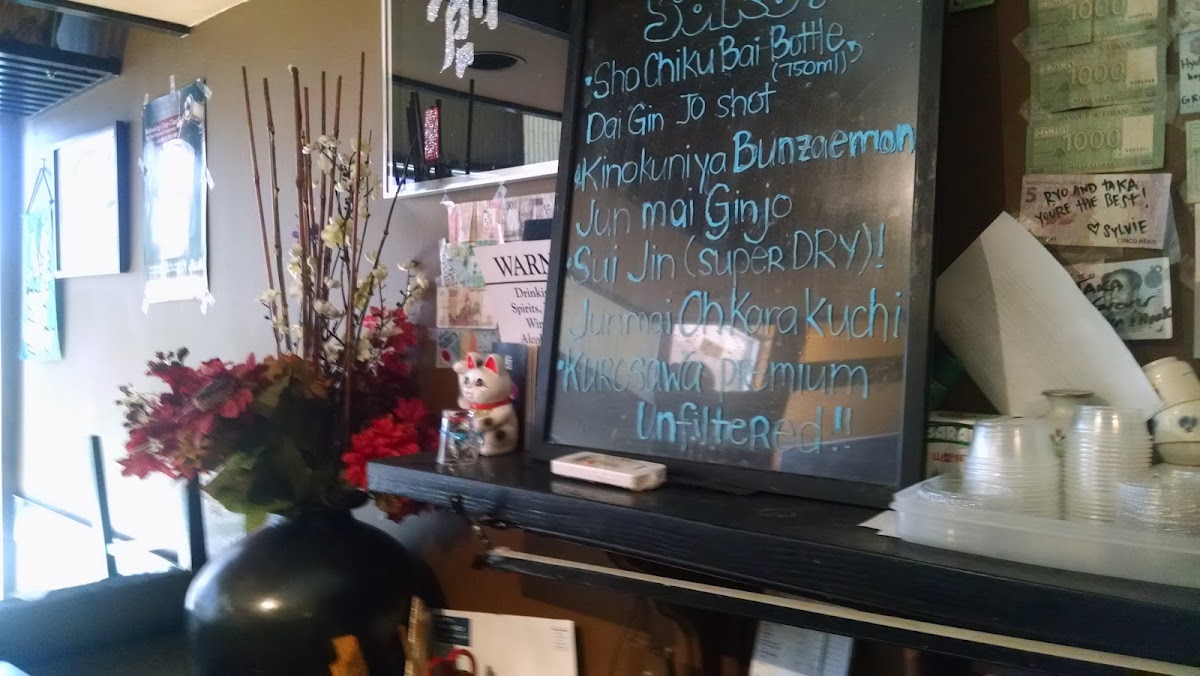 Sho Chiku Bai Bottle
(750ml)
Dai Gin Jo shot
Kinokuniya Bunzaemon
Jun mai Ginjo
Sui Jin (super DRY)!
Junmai Oh Kara Kuchi
Kurosawa premium
Unfiltered!!
WARN
Drinkin
Spirits,
Win
Alcoh
1000
1000
1000
5
RYO AND TAKA
YOU'RE THE BEST!
♡ SYLVIE
CINCO
10
TAKA